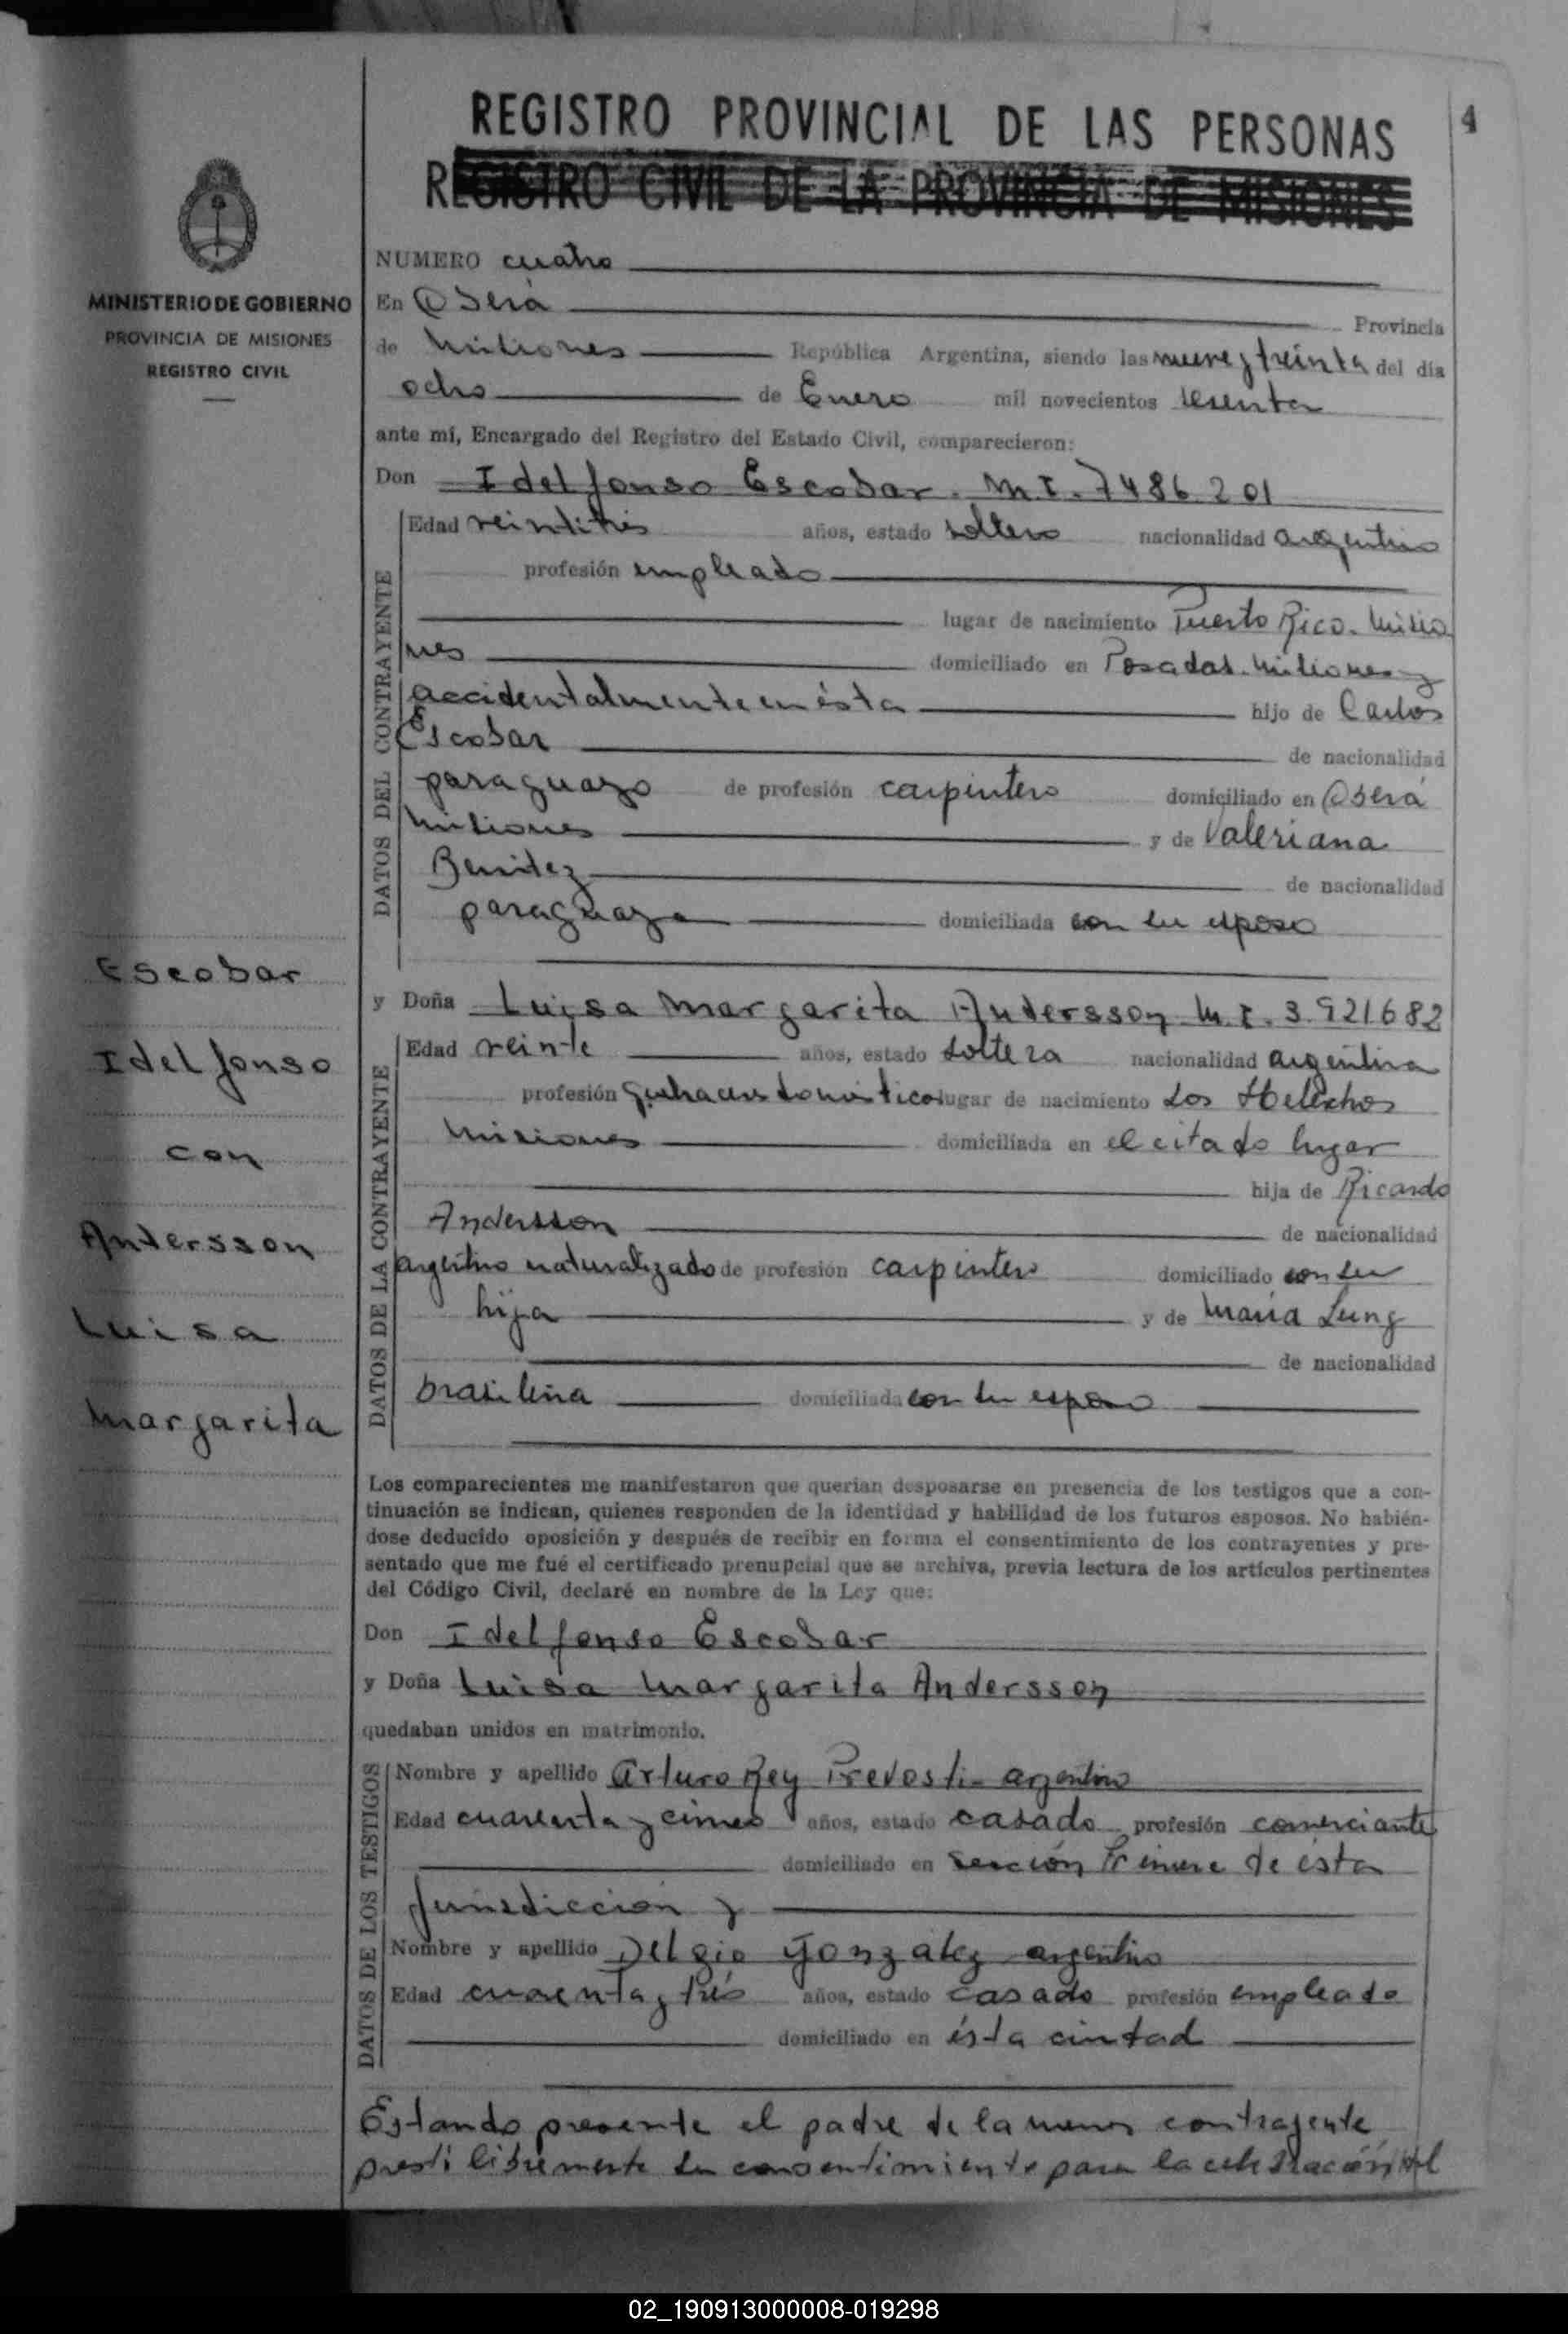 REGISTRO PROVINCIAL DE LAS PERSONAS
4
REGISTRO CIVIL DE LA PROVINCIA DE MISIONES
MINISTERIO DE GOBIERNO
PROVINCIA DE MISIONES
REGISTRO CIVIL
NUMERO cuatro
En Oberá Provincia
de Misiones República Argentina, siendo las nueve y treinta del día
ocho de Enero mil novecientos sesenta
ante mí, Encargado del Registro del Estado Civil, comparecieron:
Don Idelfonso Escobar. M.I. 7486201
DATOS DEL CONTRAYENTE
Edad veintitrés años, estado soltero nacionalidad argentino
profesión empleado
lugar de nacimiento Puerto Rico. Misio
nes domiciliado en Posadas. Misiones y
accidentalmente en ésta hijo de Carlos
Escobar de nacionalidad
paraguayo de profesión carpintero domiciliado en Oberá
Misiones y de Valeriana
Benitez de nacionalidad
paraguaya domiciliada con su esposo
y Doña Luisa Margarita Andersson M.I. 3.921682
DATOS DE LA CONTRAYENTE
Edad veinte años, estado soltera nacionalidad argentina
profesión quehaceres domésticos lugar de nacimiento Los Helechos
Misiones domiciliada en el citado lugar
hija de Ricardo
Andersson de nacionalidad
argentino naturalizado de profesión carpintero domiciliado con su
hija y de María Lung
de nacionalidad
brasileña domiciliada con su esposo
Escobar
Idelfonso
con
Andersson
Luisa
Margarita
Los comparecientes me manifestaron que querían desposarse en presencia de los testigos que a con-
tinuación se indican, quienes responden de la identidad y habilidad de los futuros esposos. No habién-
dose deducido oposición y después de recibir en forma el consentimiento de los contrayentes y pre-
sentado que me fué el certificado prenupcial que se archiva, previa lectura de los artículos pertinentes
del Código Civil, declaré en nombre de la Ley que:
Don Idelfonso Escobar
y Doña Luisa Margarita Andersson
quedaban unidos en matrimonio.
DATOS DE LOS TESTIGOS
Nombre y apellido Arturo Rey Prevosti - argentino
Edad cuarenta y cinco años, estado casado profesión comerciante
domiciliado en Sección Primera de ésta
Jurisdicción y
Nombre y apellido Delgio Gonzalez argentino
Edad cuarenta y tres años, estado casado profesión empleado
domiciliado en ésta ciudad
Estando presente el padre de la menor contrayente
prestó libremente su consentimiento para la celebración del
02_190913000008-019298